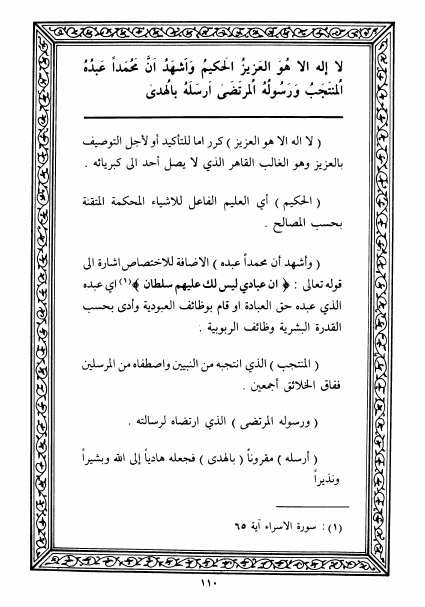 لا إله الا هُوَ العَزيزُ الحَكيمُ وَاَشهَدُ اَنَّ مُحَمَداً عَبدُهُ
اُلمنتَجَبُ وَرَسُولُهُ اُلمرتَضَىٰ اَرسَلَهُ بِالُهدىٰ
( لا اله الا هو العزيز ) كرر اما للتأكيد أو لأجل التوصيف
بالعزيز وهو الغالب القاهر الذي لا يصل أحد الى كبريائه .
( الحكيم ) أي العليم الفاعل للاشياء المحكمة المتقنة
بحسب المصالح .
( وأشهد أن محمداً عبده ) الاضافة للاختصاص اشارة الى
قوله تعالى : ﴿ ان عبادي ليس لك عليهم سلطان ﴾(١) اي عبده
الذي عبده حق العبادة او قام بوظائف العبودية وأدى بحسب
القدرة البشرية وظائف الربوبية .
( المنتجب ) الذي انتجبه من النبيين واصطفاه من المرسلين
ففاق الخلائق أجمعين .
( ورسوله المرتضى ) الذي ارتضاه لرسالته .
( أرسله ) مقروناً ( بالهدى ) فجعله هادياً إلى الله وبشيراً
ونذيراً
(١) : سورة الاسراء آية ٦٥
١١٠